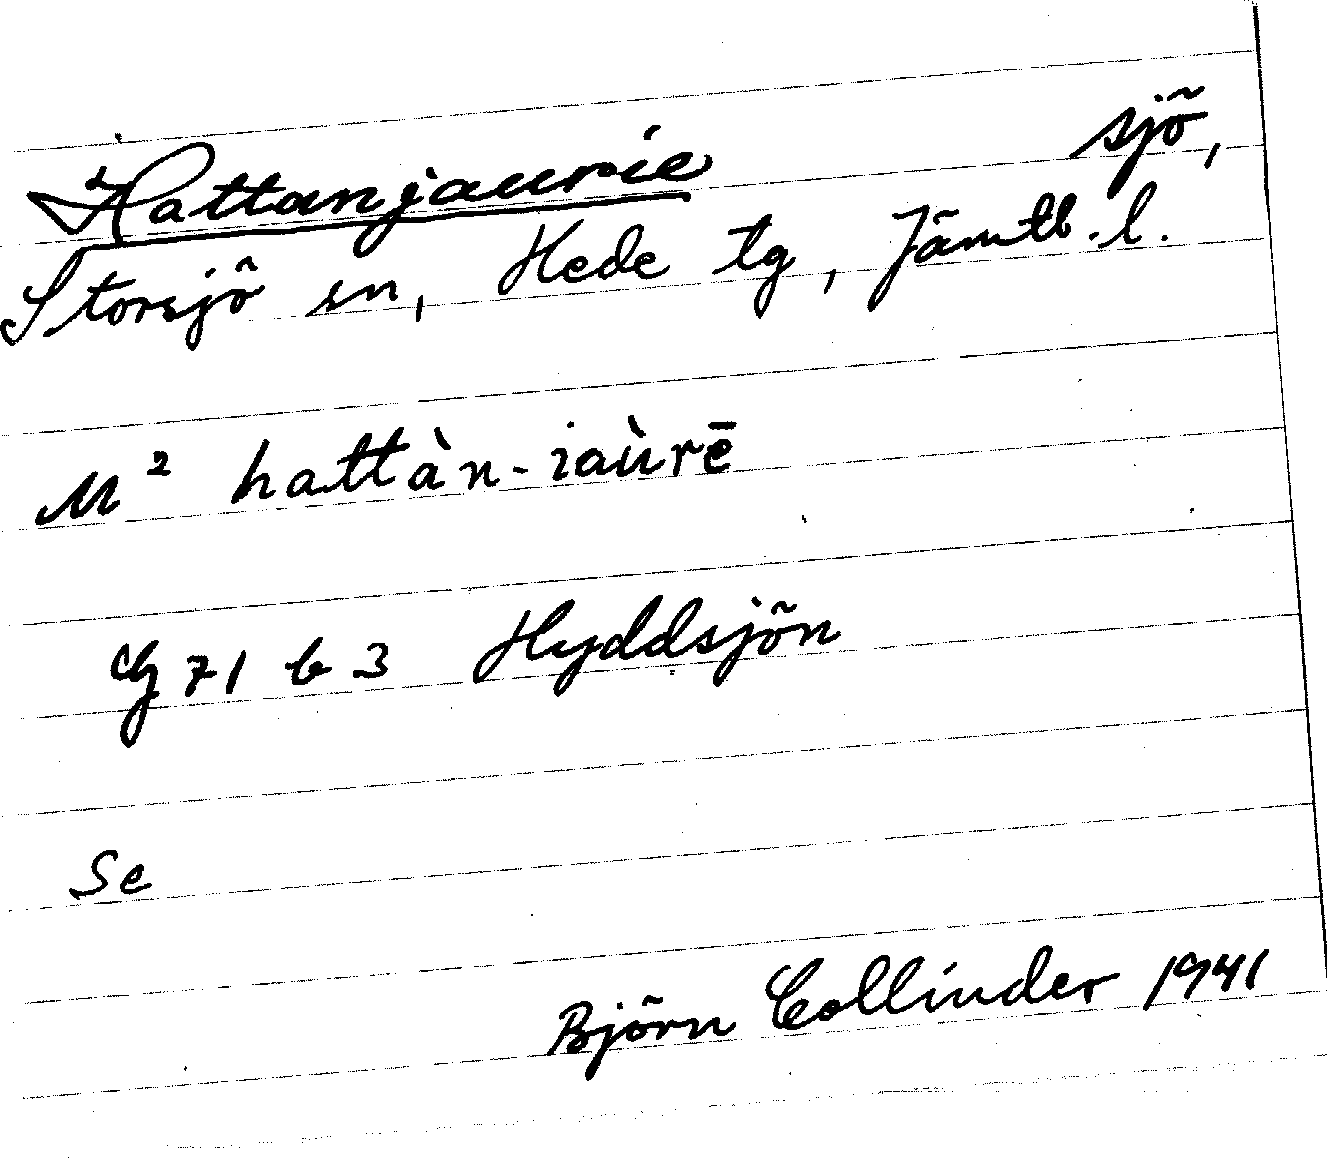 Hattanjaurie sjö,
Storsjö sn, Hede tg, Jämtl.l.
M² hattàn-iaùrē
Cg 71 b 3 Hyddsjön
Se
Björn Collinder 1941